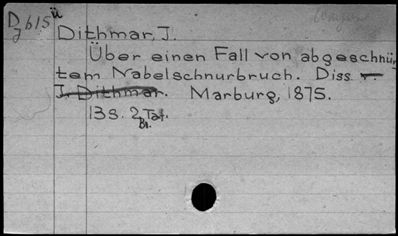 D 615 ü
Dithmar, J.
Über einen Fall von abgeschnür
tem Nabelschnurbruch. Diss v.
J. Dithmar. Marburg, 1875.
13 S. 2 Taf.
Bl.